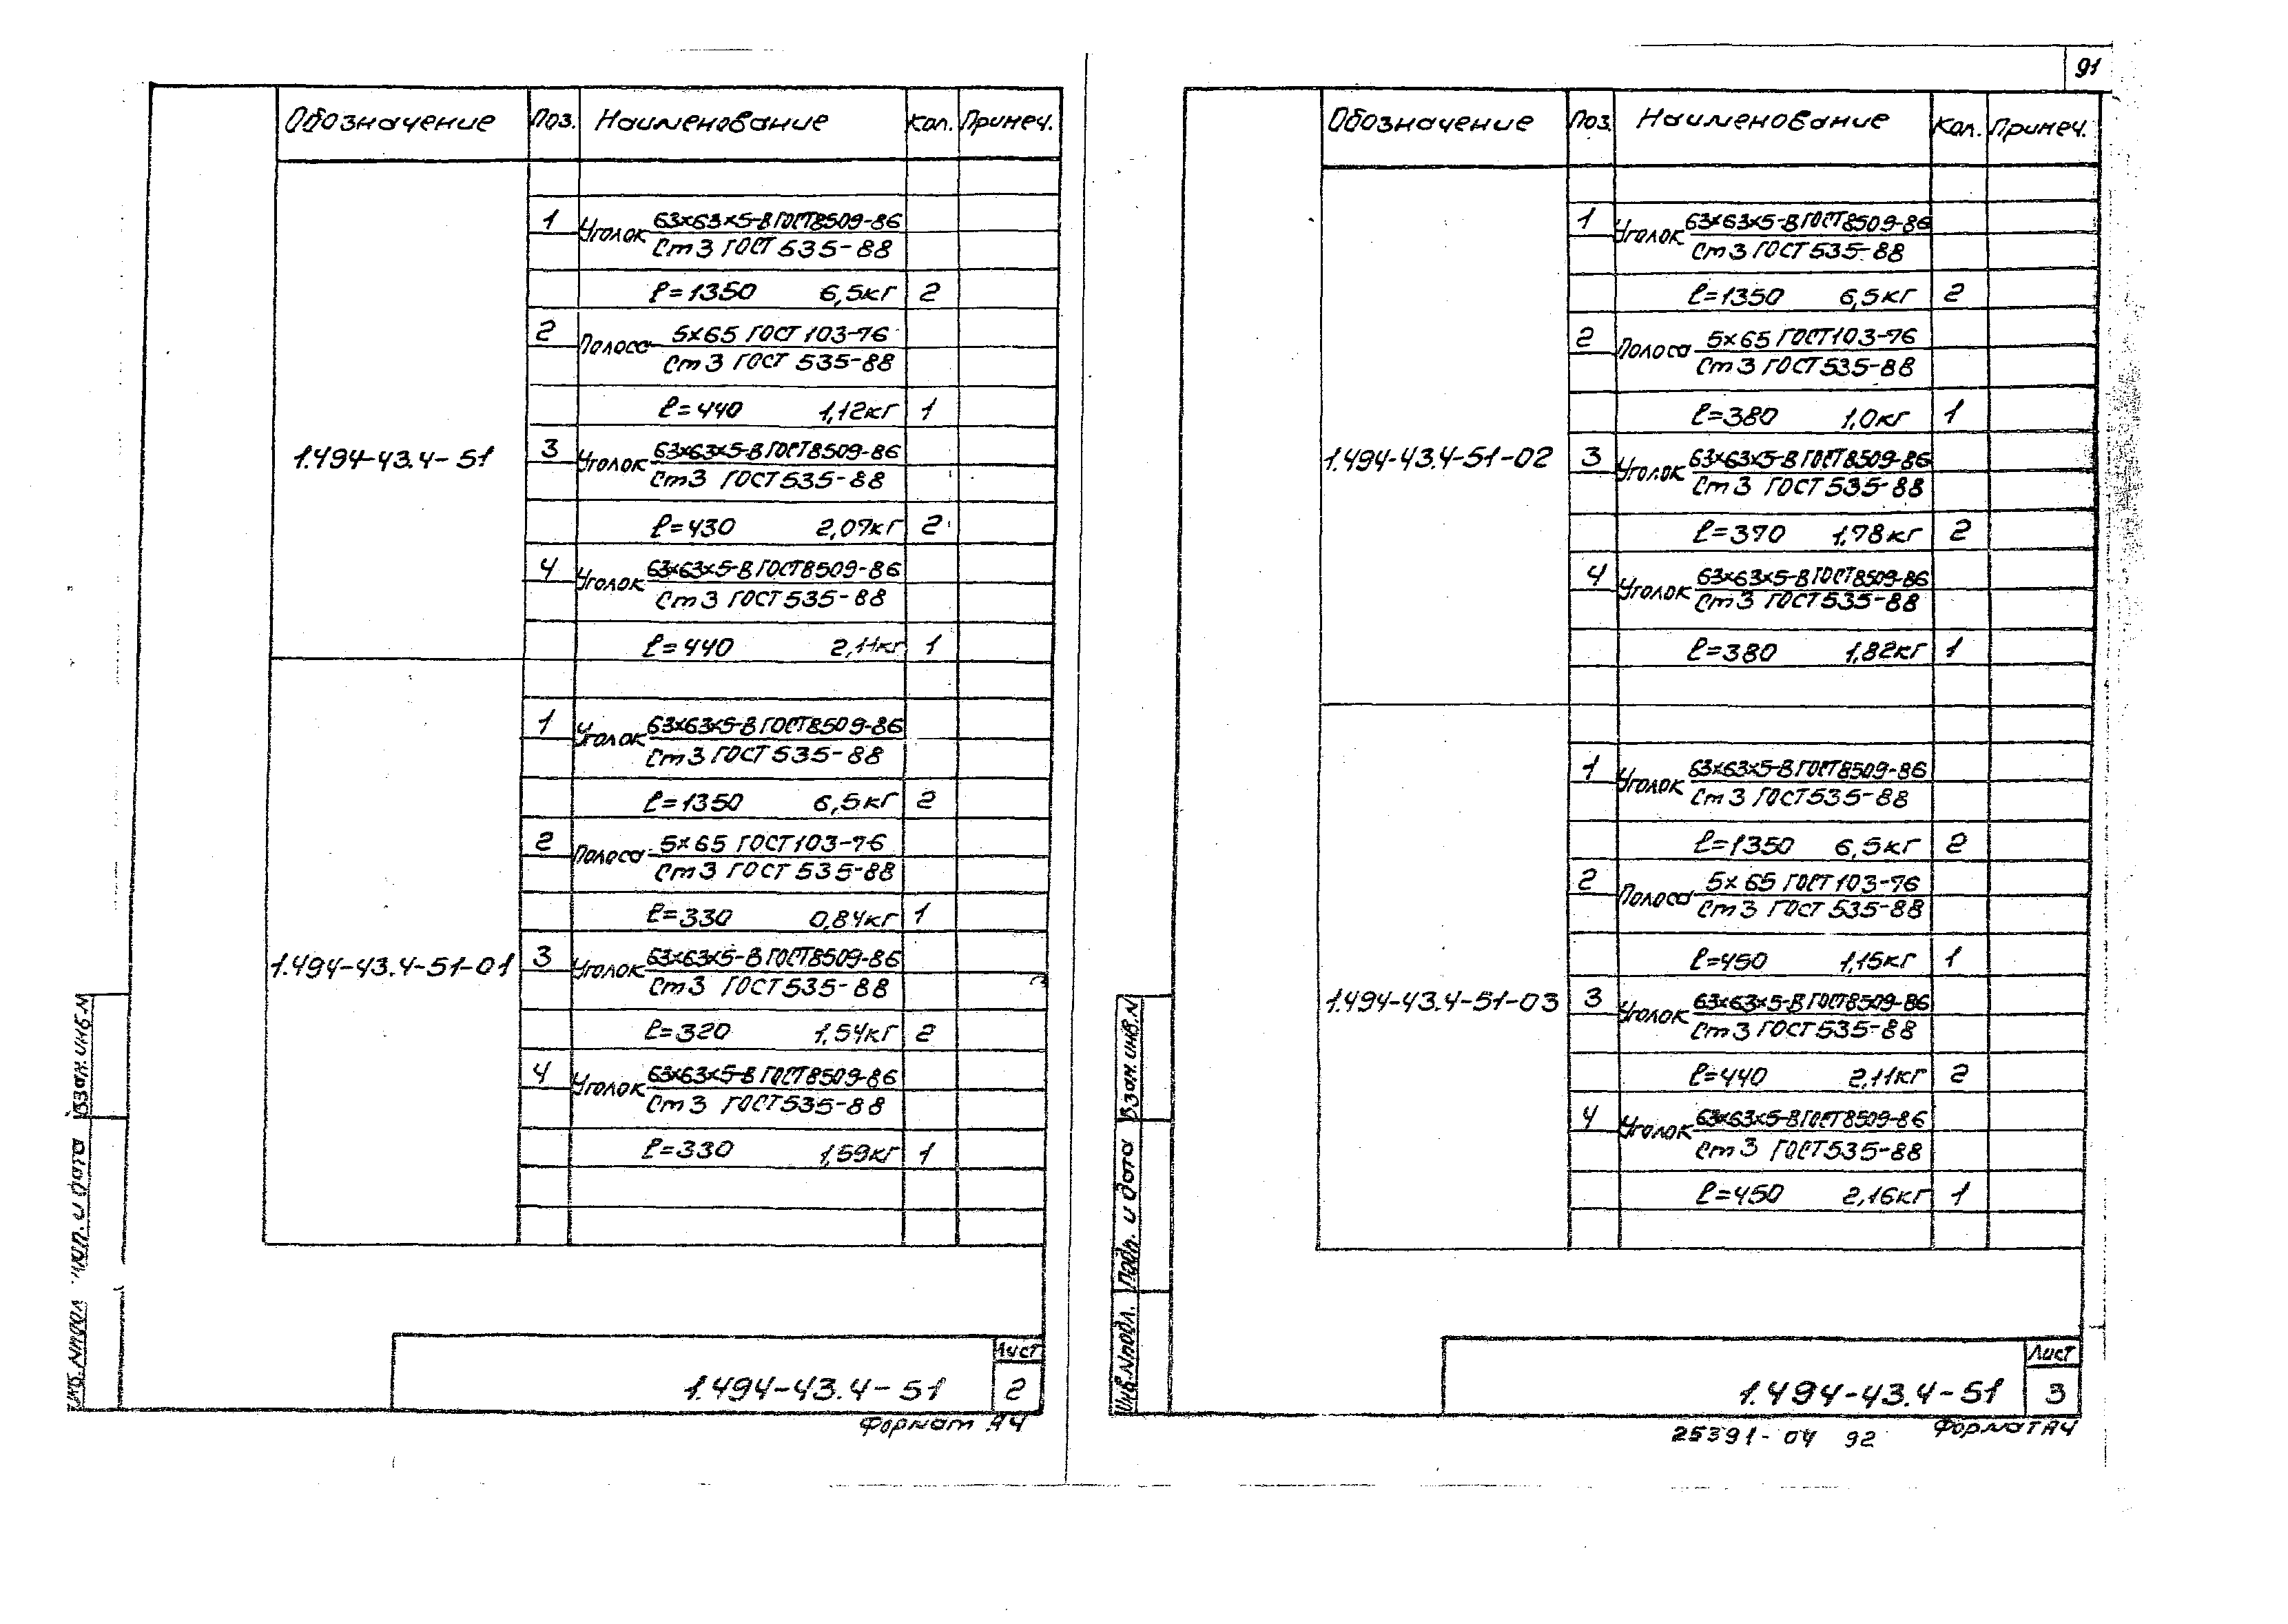 Обозначение Поз. Наименование Кол. Примеч.
1 Уголок 63×63×5-В ГОСТ 8509-86
Ст3 ГОСТ 535-88
ℓ=1350 6,5кг 2
2 Полоса 5×65 ГОСТ 103-76
Ст3 ГОСТ 535-88
ℓ=440 1,12кг 1
1.494-43.4-51 3 Уголок 63×63×5-В ГОСТ 8509-86
Ст3 ГОСТ 535-88
ℓ=430 2,07кг 2
4 Уголок 63×63×5-В ГОСТ 8509-86
Ст3 ГОСТ 535-88
ℓ=440 2,11кг 1
1 Уголок 63×63×5-В ГОСТ 8509-86
Ст3 ГОСТ 535-88
ℓ=1350 6,5кг 2
2 Полоса 5×65 ГОСТ 103-76
Ст3 ГОСТ 535-88
ℓ=330 0,84кг 1
1.494-43.4-51-01 3 Уголок 63×63×5-В ГОСТ 8509-86
Ст3 ГОСТ 535-88
ℓ=320 1,54кг 2
4 Уголок 63×63×5-В ГОСТ 8509-86
Ст3 ГОСТ 535-88
ℓ=330 1,59кг 1
Взам. инв. N
и дата
Лист
1.494-43.4-51 2
Формат А4
91
Обозначение Поз. Наименование Кол. Примеч.
1 Уголок 63×63×5-В ГОСТ 8509-86
Ст3 ГОСТ 535-88
ℓ=1350 6,5кг 2
2 Полоса 5×65 ГОСТ 103-76
Ст3 ГОСТ 535-88
ℓ=380 1,0кг 1
1.494-43.4-51-02 3 Уголок 63×63×5-В ГОСТ 8509-86
Ст3 ГОСТ 535-88
ℓ=370 1,78кг 2
4 Уголок 63×63×5-В ГОСТ 8509-86
Ст3 ГОСТ 535-88
ℓ=380 1,82кг 1
1 Уголок 63×63×5-В ГОСТ 8509-86
Ст3 ГОСТ 535-88
ℓ=1350 6,5кг 2
2 Полоса 5×65 ГОСТ 103-76
Ст3 ГОСТ 535-88
ℓ=450 1,15кг 1
1.494-43.4-51-03 3 Уголок 63×63×5-В ГОСТ 8509-86
Ст3 ГОСТ 535-88
ℓ=440 2,11кг 2
4 Уголок 63×63×5-В ГОСТ 8509-86
Ст3 ГОСТ 535-88
ℓ=450 2,16кг 1
Взам. инв. N
Подп. и дата
Инв. N подл.
Лист
1.494-43.4-51 3
25391-04 92 Формат А4